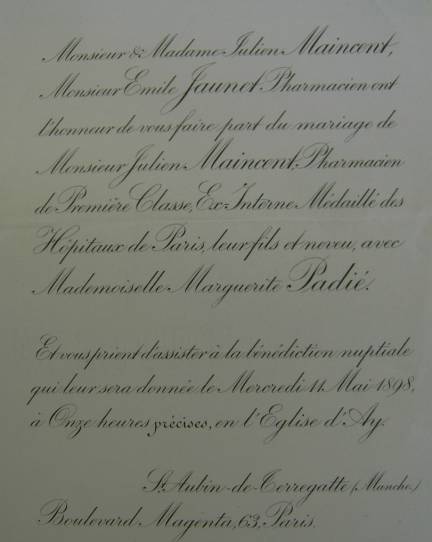 Monsieur & Madame Julien Maincent,
Monsieur Emile Jaunet, Pharmacien ont
l'honneur de vous faire part du mariage de
Monsieur Julien Maincent, Pharmacien
de Première Classe, Ex-Interne Médaillé des
Hôpitaux de Paris, leur fils et neveu, avec
Mademoiselle Marguerite Padié.
Et vous prient d'assister à la bénédiction nuptiale
qui leur sera donnée le Mercredi 11 Mai 1898,
à Onze heures précises, en l'Eglise d'Ay.
St. Aubin-de-Terregatte (Manche.)
Boulevard Magenta, 63, Paris.